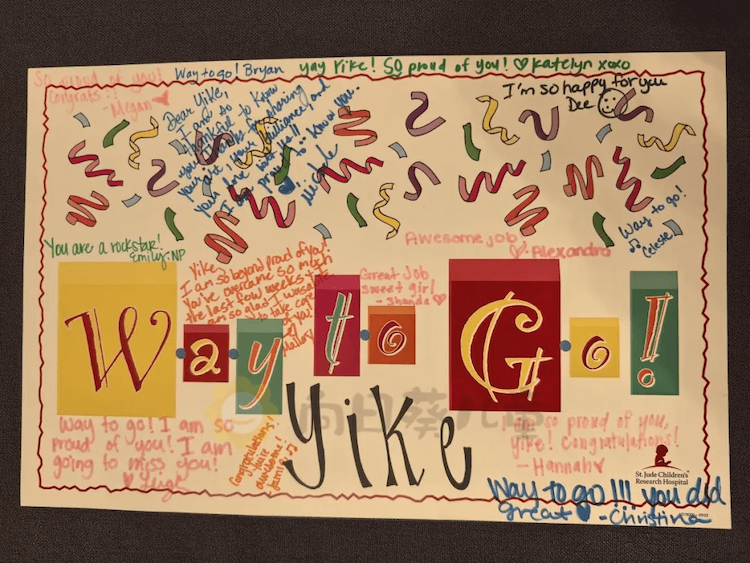 So proud of you!
Congrats!!
- Megan
Way to go! Bryan
yay Yike! So proud of you! ♡ Katelyn xoxo
I'm so happy for you
Dee
Dear Yike,
I am so
thankful to know
you. Thanks for sharing
your
your
I am proud to know you.
Nicole
Way to go!
Celeste
You are a rockstar!
Emily, NP
Yike,
I am so beyond proud of you!
You've overcome so much
the last few weeks
am so glad I was
to take care
of you
Mallory
Great Job
sweet girl
- Shanda ♡
Awesome job
♡ - Alexandra
Way to Go!
Yike
向日葵儿童
Way to go! I am so
proud of you! I am
going to miss you!
♡ Leigh
Congratulations!
You're
awesome!
Jamie :)
so proud of you,
Yike! Congratulations!
- Hannah ♥
St. Jude Children's
Research Hospital
Way to go!!! you did
great ♥ - Christina